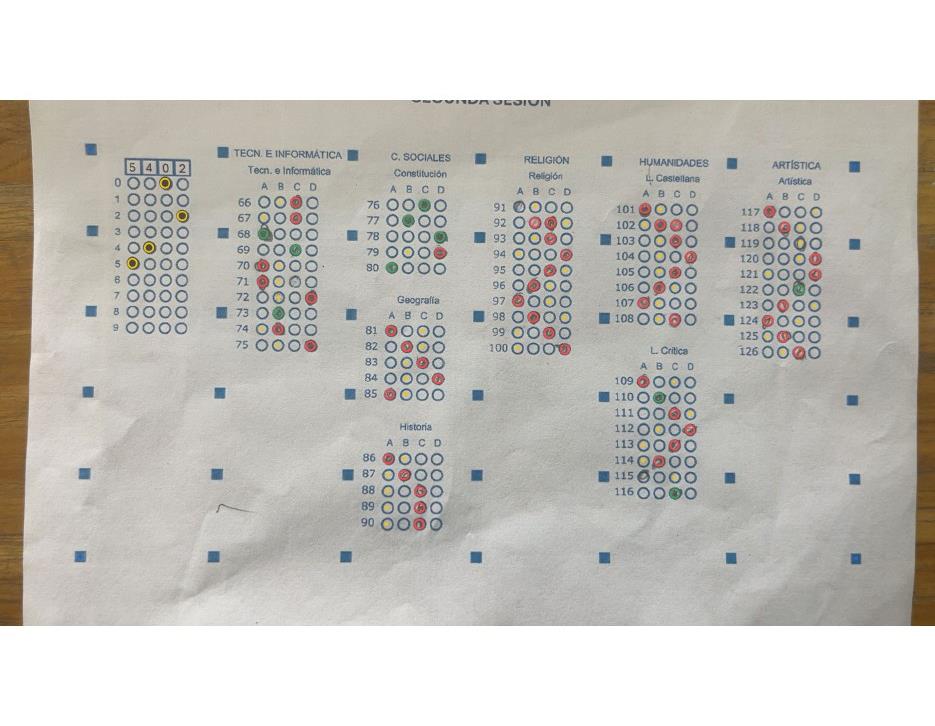 SEGUNDA SESIÓN
5 4 0 2
0
1
2
3
4
5
6
7
8
9
TECN. E INFORMÁTICA
Tecn. e Informática
A B C D
66
67
68
69
70
71
72
73
74
75
C. SOCIALES
Constitución
A B C D
76
77
78
79
80
Geografía
A B C D
81
82
83
84
85
Historia
A B C D
86
87
88
89
90
RELIGIÓN
Religión
A B C D
91
92
93
94
95
96
97
98
99
100
HUMANIDADES
L. Castellana
A B C D
101
102
103
104
105
106
107
108
L. Crítica
A B C D
109
110
111
112
113
114
115
116
ARTÍSTICA
Artística
A B C D
117
118
119
120
121
122
123
124
125
126